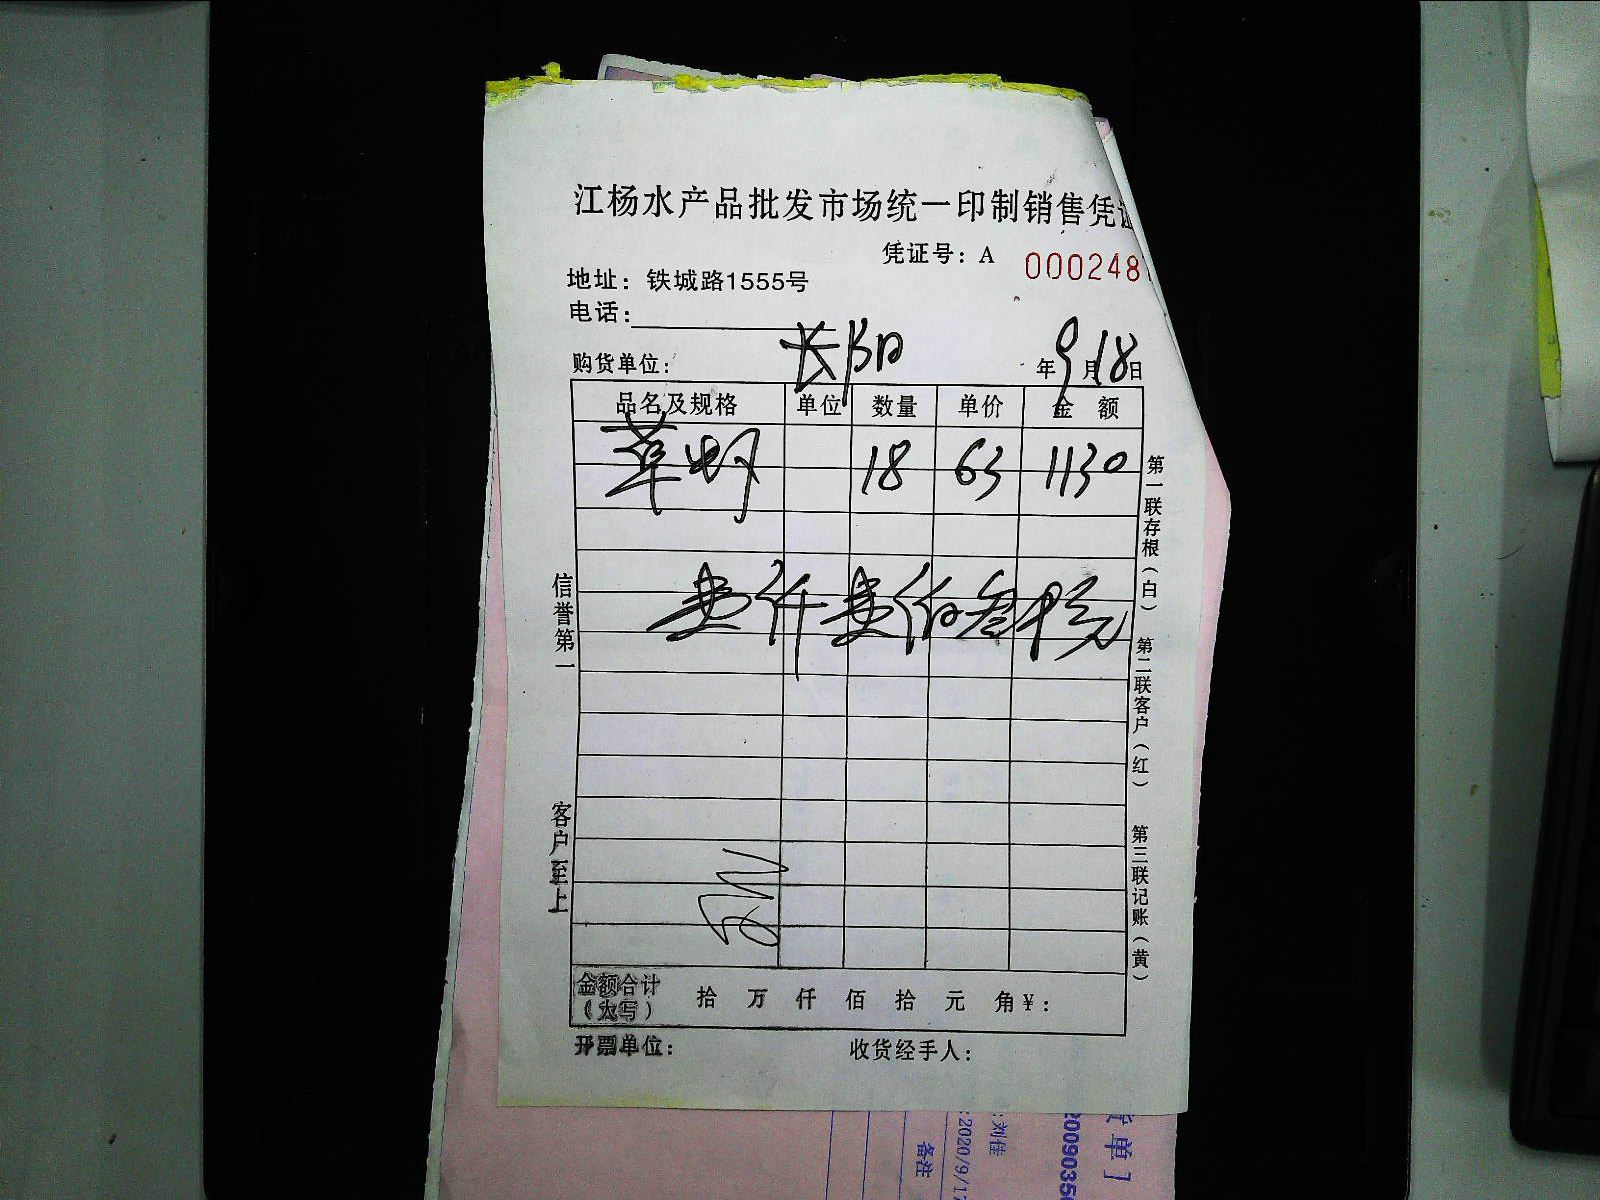 江杨水产品批发市场统一印制销售凭证
凭证号：A 000248
地址：铁城路1555号
电话：
购货单位： 长阳 年9月18日
品名及规格 单位 数量 单价 金 额
草虾 18 63 1130
壹仟壹佰叁十元
金额合计（大写） 拾 万 仟 佰 拾 元 角 ¥：
开票单位： 收货经手人：
信誉第一
客户至上
第一联存根（白）
第二联客户（红）
第三联记账（黄）
:刘佳
:2020/9/17
备注
2009035
单]